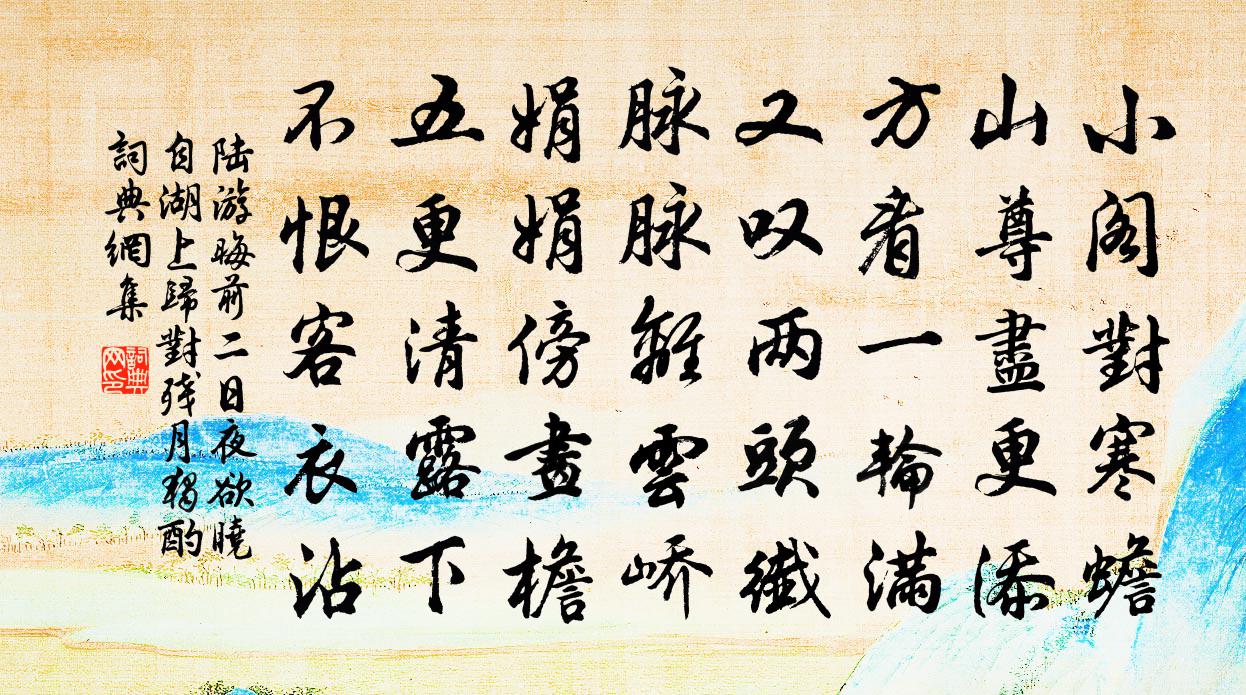 小阁對寒蟾
山尊盡更添
方看一輪滿
又叹两頭纖
脉脉離雲嶠
娟娟傍畫檐
五更清露下
不恨客衣沾
陆游晦前二日夜欲曉
自湖上歸對残月獨酌
詞典網集
詞典
网印